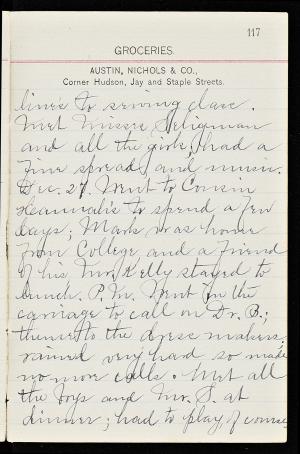 117
GROCERIES.
AUSTIN, NICHOLS & CO.,
Corner Hudson, Jay and Staple Streets.
lines to sewing class.
Met Misses Seligman
and all the girls; had a
fine spread, and music.
Dec. 27. Went to Cousin
Hannah's to spend a few
days; Mark was home
from College and a friend
of his Mr. Kelly stayed to
lunch. P.M. Went in the
carriage to call on Dr. B.;
thence to the dress makers;
rained very hard so made
no more calls. Met all
the boys and Mr. S. at
dinner; had to play, of course